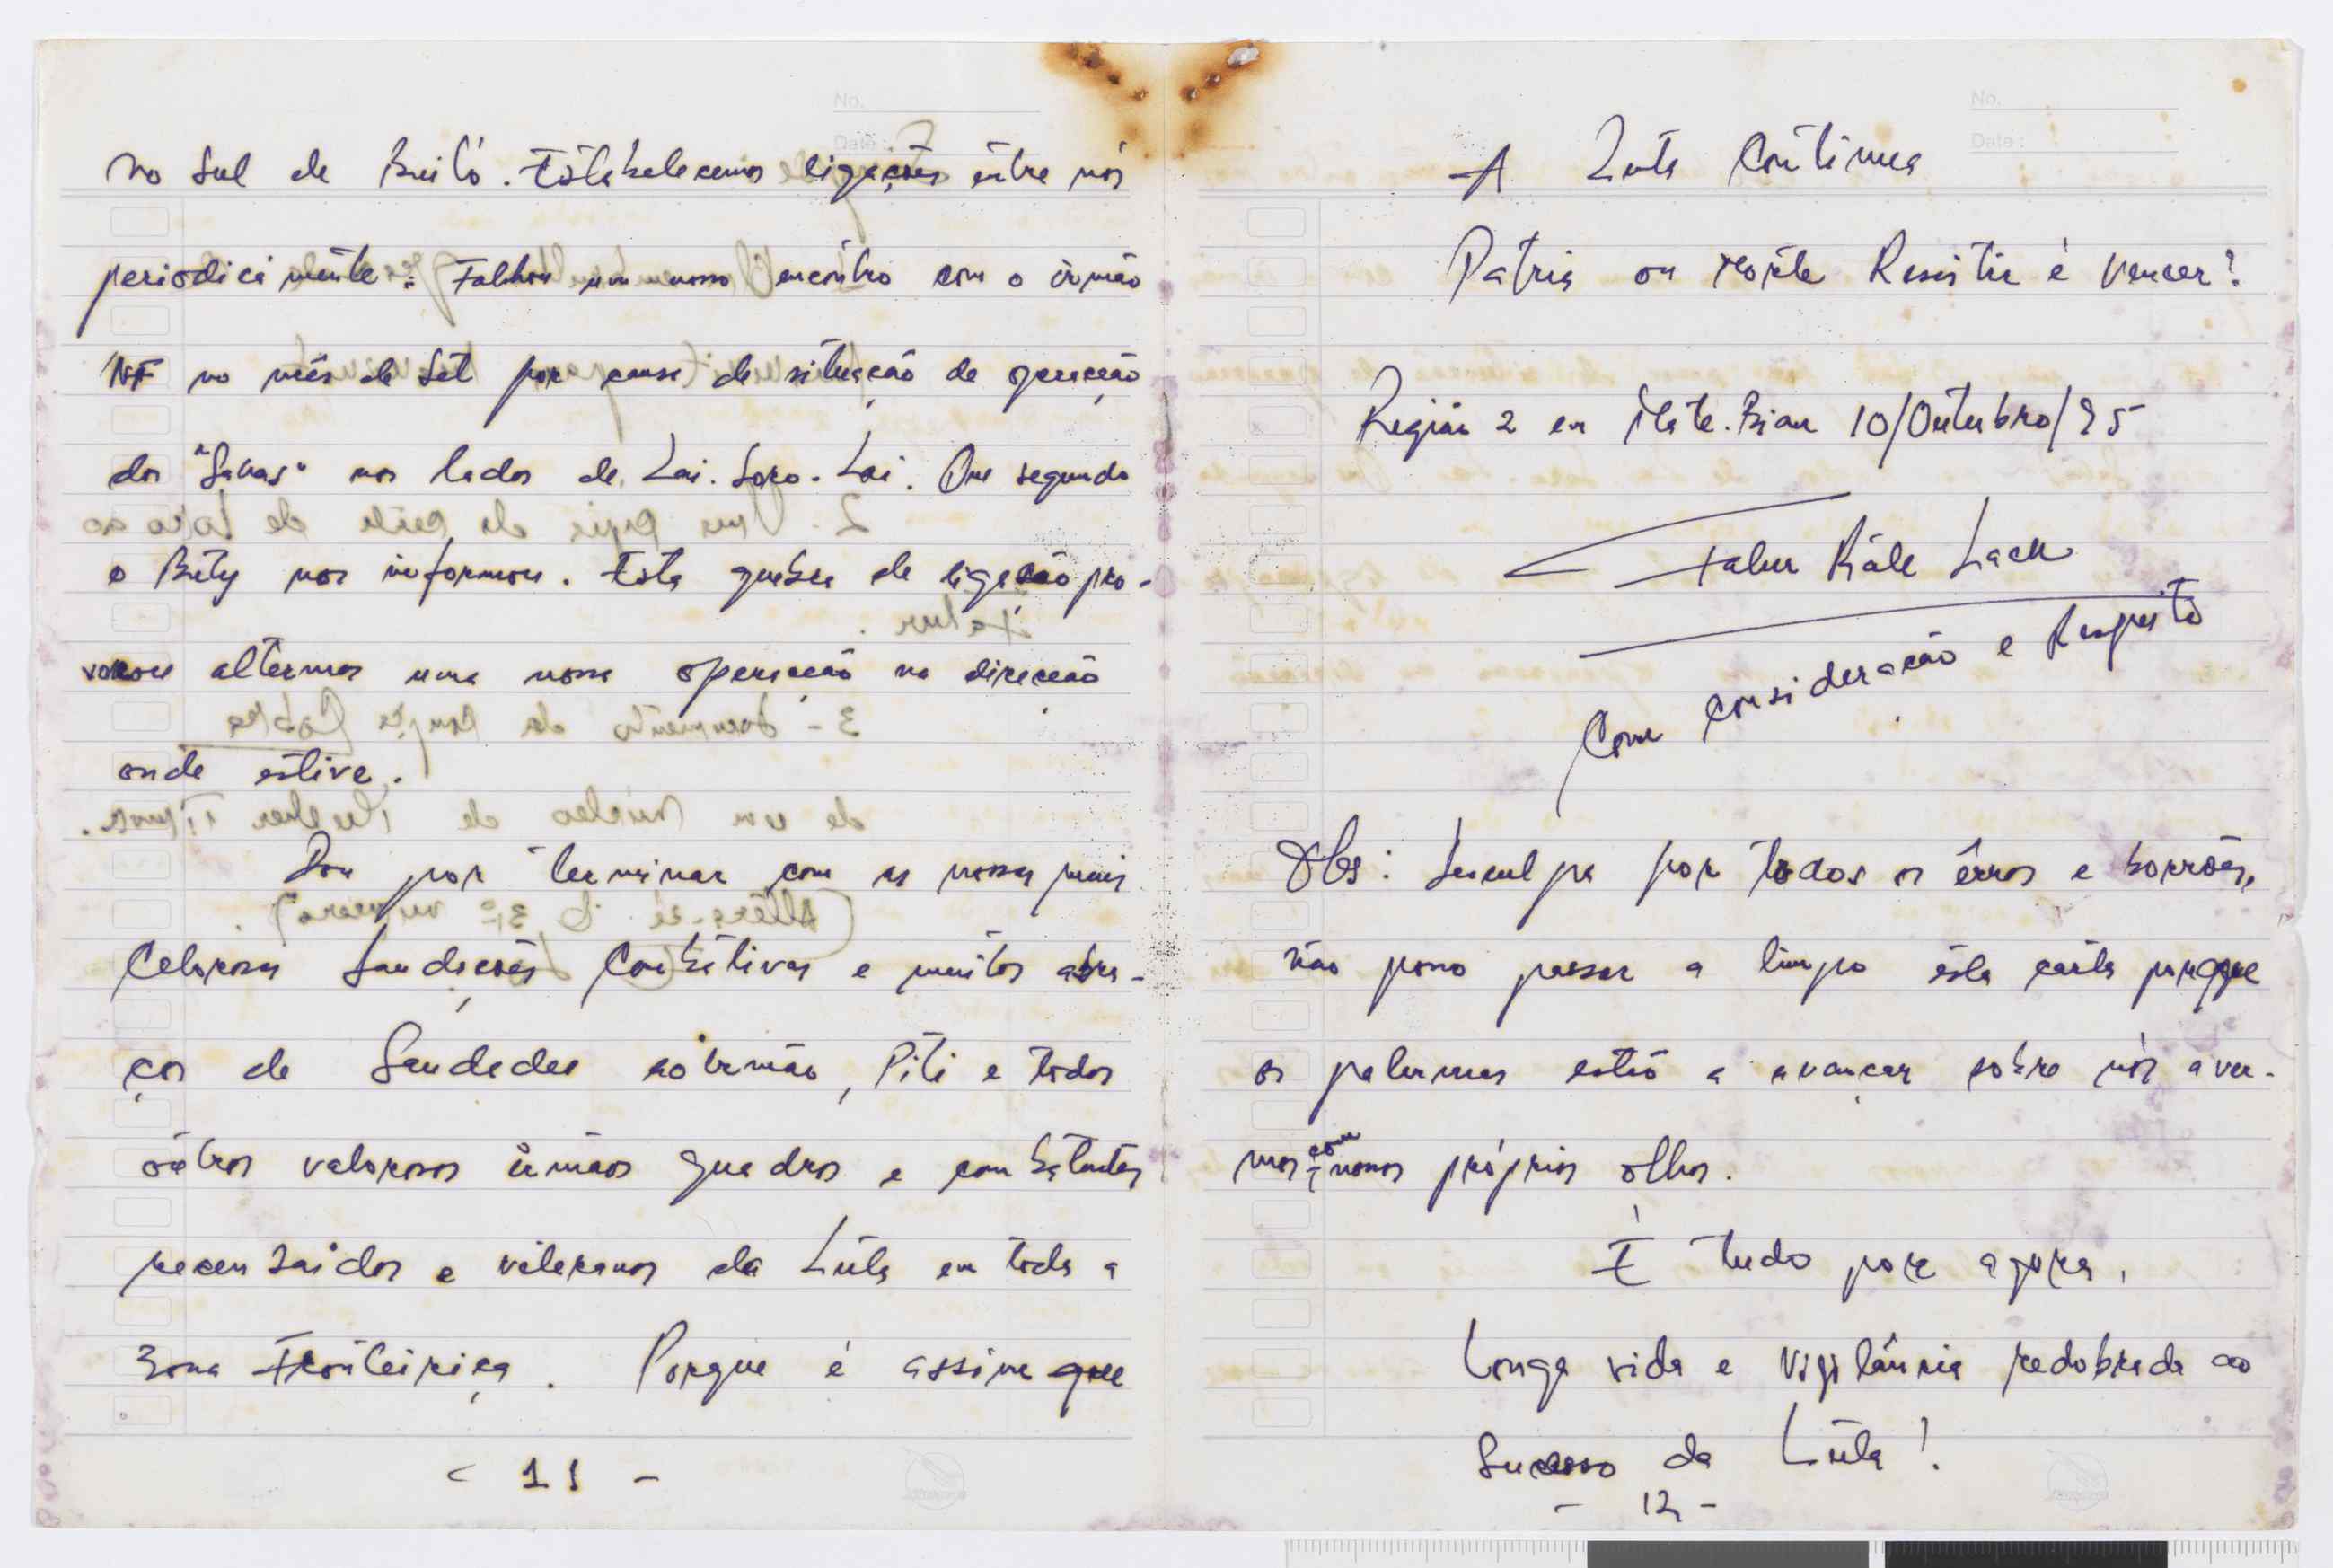 No.
Date:
no sul de Builó. Estabelecemos ligações entre nós
periodicamente. Falhou um nosso encontro com o irmão
NF no mês de Set por causa de situação de operação
dos "Sakas" nos lados de Lai. Soro. Lai. Que segundo
o Bity nos informou. Esta quebra de ligação pro-
vocou alternos uma nossa operação na direcção
onde estive.
Dou por terminar com as nossas mais
Calorosas Saudações Combativas e muitos abra-
ços de Saudades ao irmão, Piti e todos
outros valorosos irmãos quadros e combatentes
recem saidos e veteranos da Luta em toda a
zona Fronteiriça. Porque é assim que
- 11 -
No.
Date:
A Luta Continua
Patria ou Morte Resistir é Vencer!
Região 2 em Mate. Bian 10/Outubro/95
Falur Rate Laek
Com consideração e Respeito
Obs: Desculpa por todos os êrros e borrões,
não posso passar a limpo esta carta porque
os palermas estão a avançar sobre nós a ver-
mos com nossos próprios olhos.
É tudo por agora,
Longa vida e Vigilância redobrada ao
Sucesso da Luta!
- 12 -